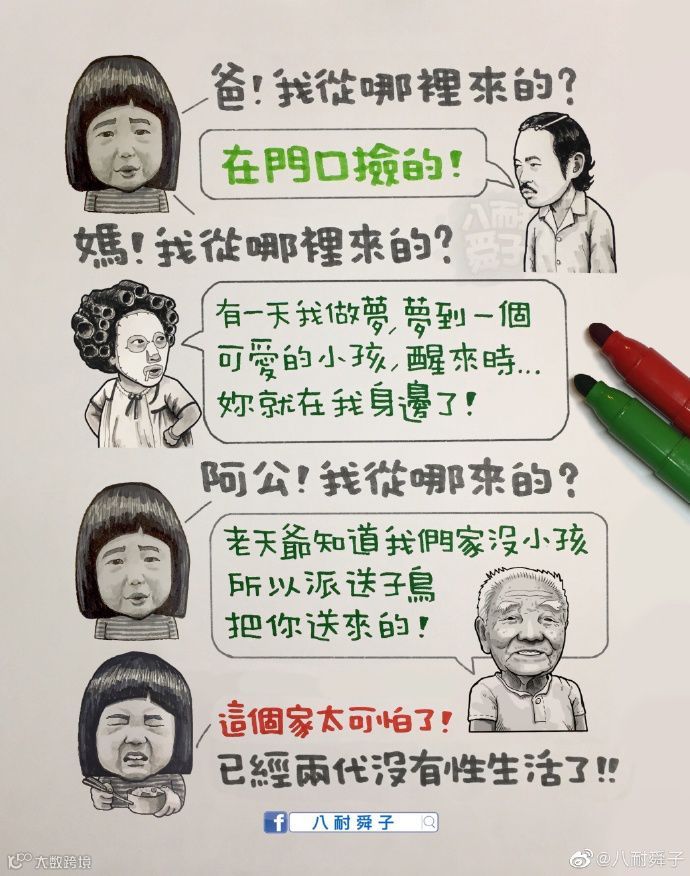 爸!我從哪裡來的?
在門口撿的!
八耐
舜子
媽!我從哪裡來的?
有一天我做夢,夢到一個
可愛的小孩,醒來時...
妳就在我身邊了!
阿公!我從哪來的?
老天爺知道我們家沒小孩
所以派送子鳥
把你送來的!
這個家太可怕了!
已經兩代沒有性生活了!!
f 八耐舜子
大数跨境
@八耐舜子